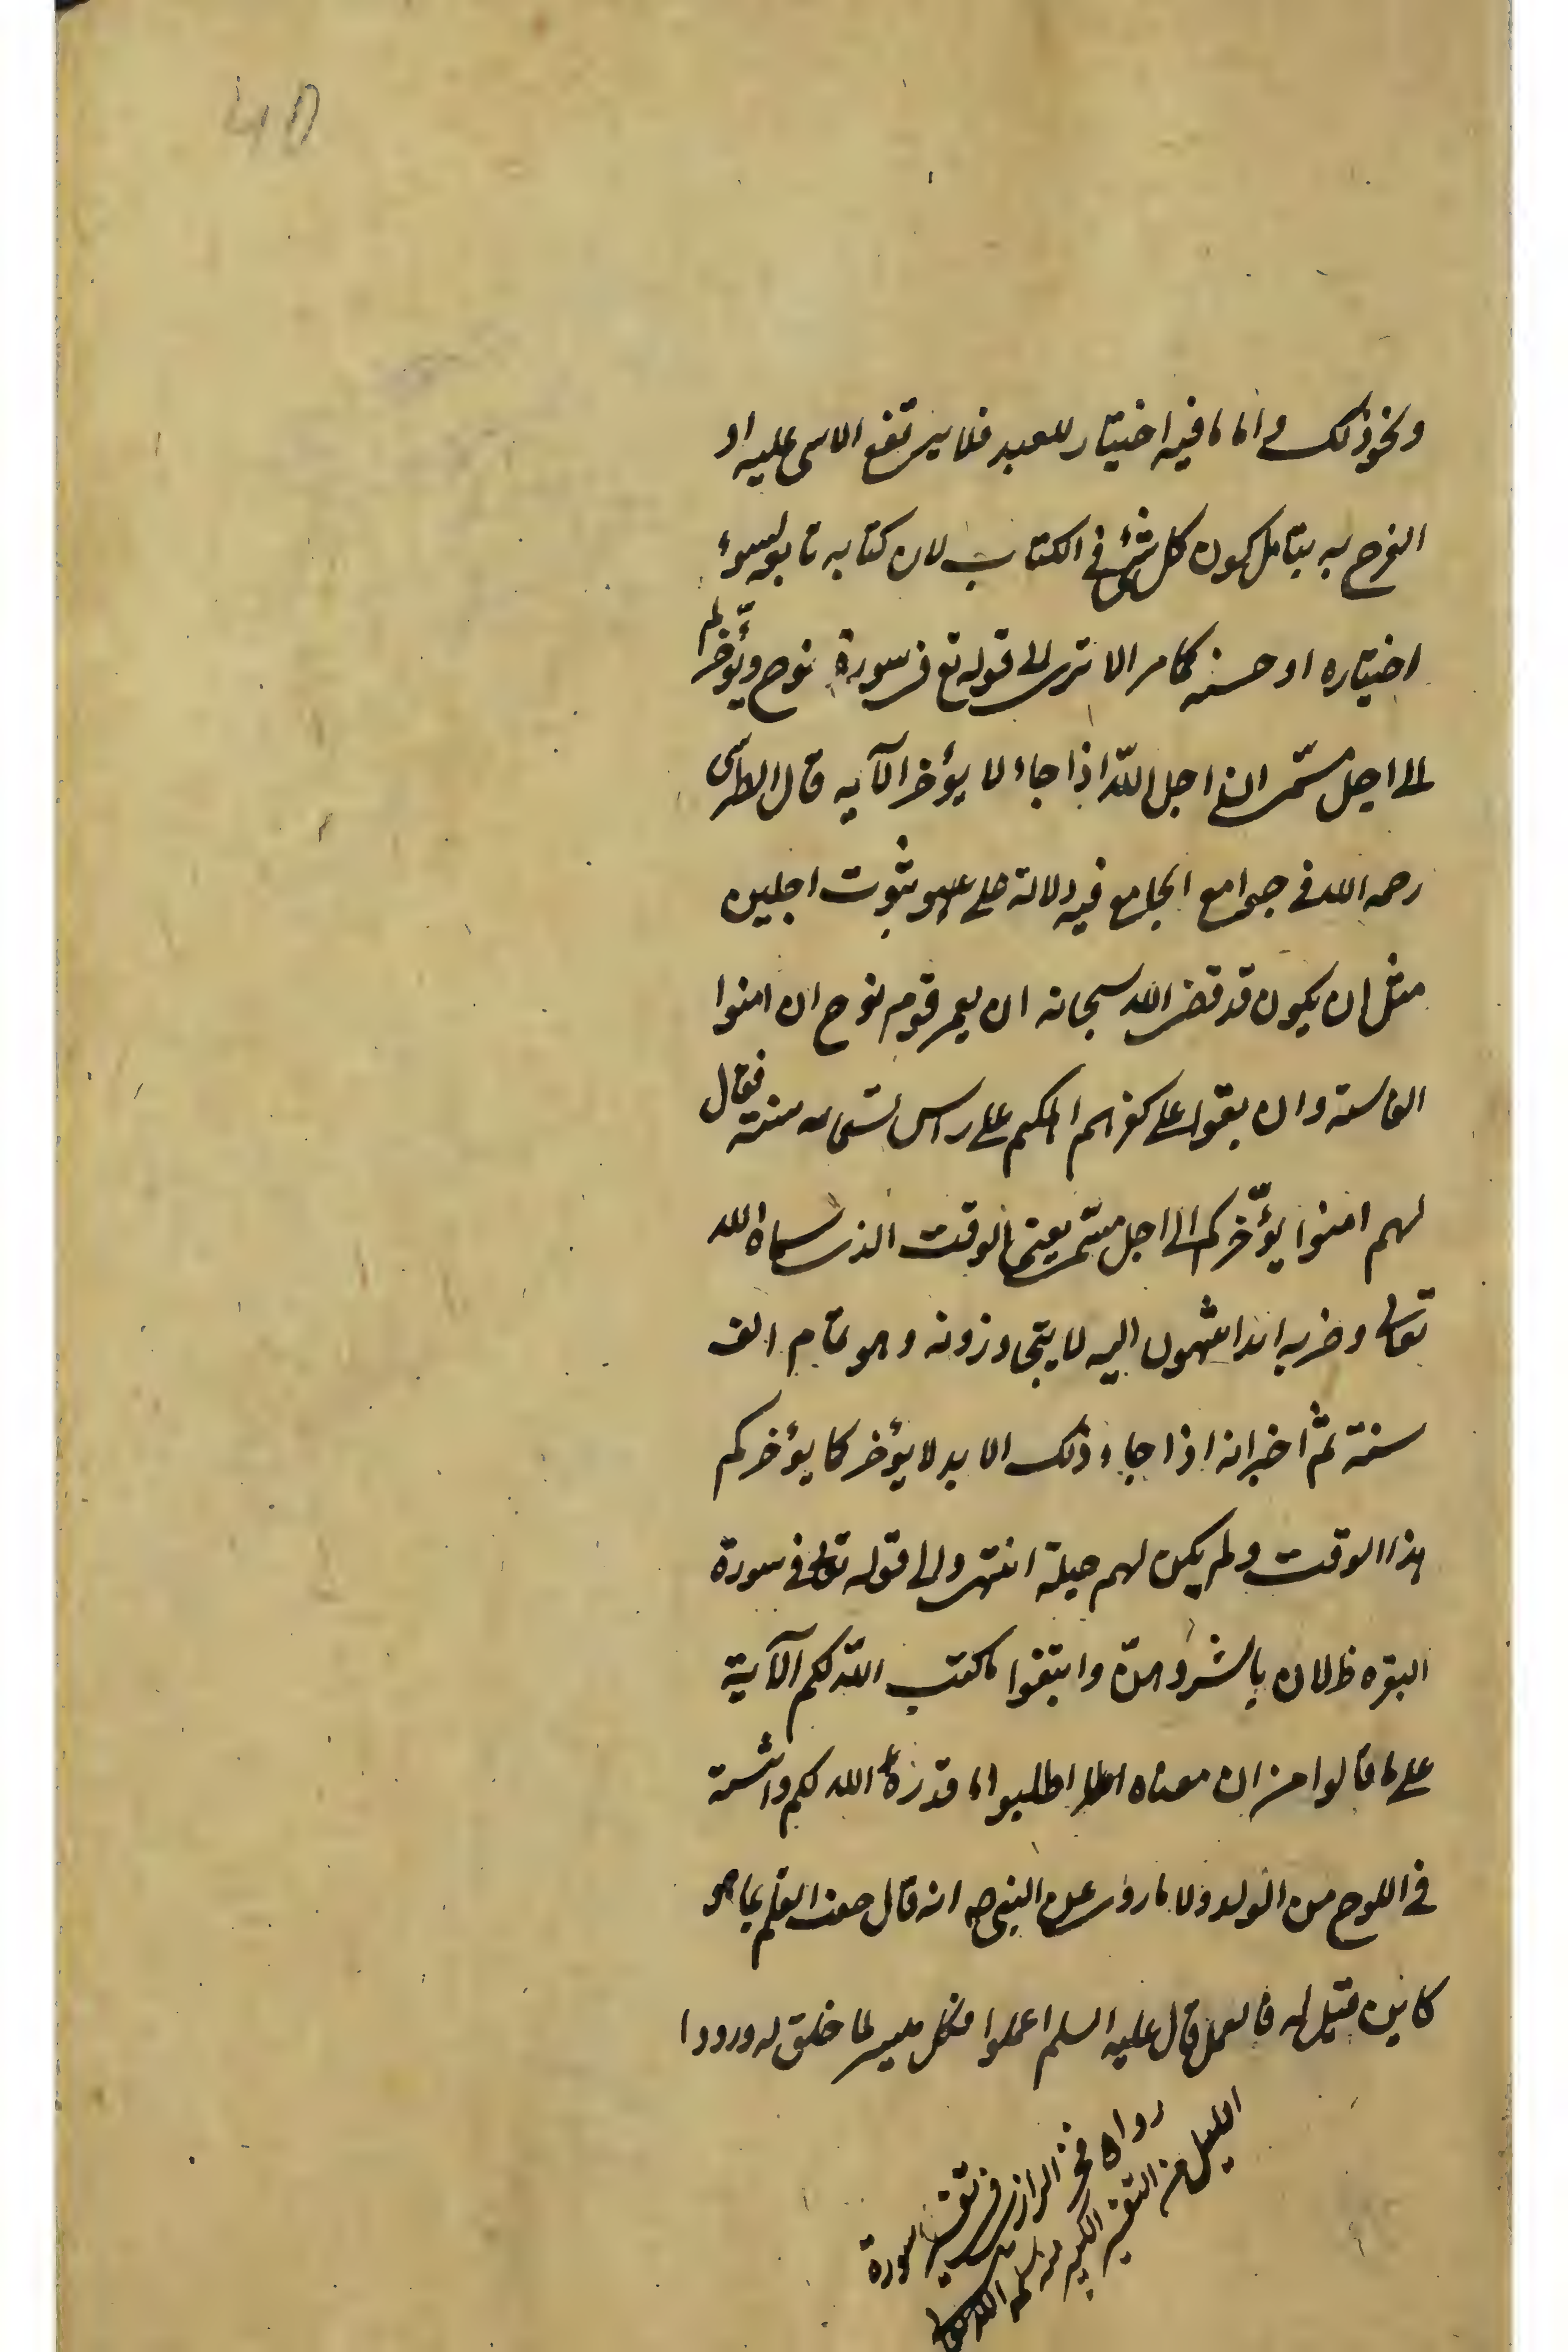 ونحو ذلك واما ما فيه اختيار للعبد فلا يرتفع الاسى عليه او
الفرح به بتامل كون كل شئ في الكتاب لان كتابه تابع لسوء
اختياره او حسنه كما مر الا ترى الى قوله تع فى سورة نوح ويؤخّركم
الى اجل مسمّى ان اجل اللّه اذا جاء لا يؤخر الآيه قال الطبرسى
رحمه الله فى جوامع الجامع فيه دلالة على ثبوت اجلين
مثل ان يكون قد قضى الله سبحانه ان يعمر قوم نوح ان امنوا
الف سنة وان بقوا على كفرهم اهلكهم على راس تسعمائه سنة فقال
لهم امنوا يؤخّركم الى اجل مسمّى يعنى الوقت الذى سماه الله
تعالى وضربه امدا ينتهون اليه لا يتجاوزونه وهو تمام الف
سنة ثمّ اخبر انه اذا جاء ذلك الامد لا يؤخر كما يؤخركم
هذا الوقت ولم يكن لهم حيلة انتهى والى قوله تعالى فى سورة
البقره فالان باشروهنّ وابتغوا ما كتب اللّه لكم الآية
على ما قالوا من ان معناه اطلبوا ما قدره الله لكم واثبته
فى اللوح من الولد ولما روى عن النبى ص انه قال جف القلم بما هو
كاين فقيل له فالعمل قال عليه السلم اعملوا فكل ميسر لما خلق له ورووا
رواه فخر الرازى فى تفسير سورة
الليل من التفسير الكبير منه سلمه الله تعالى